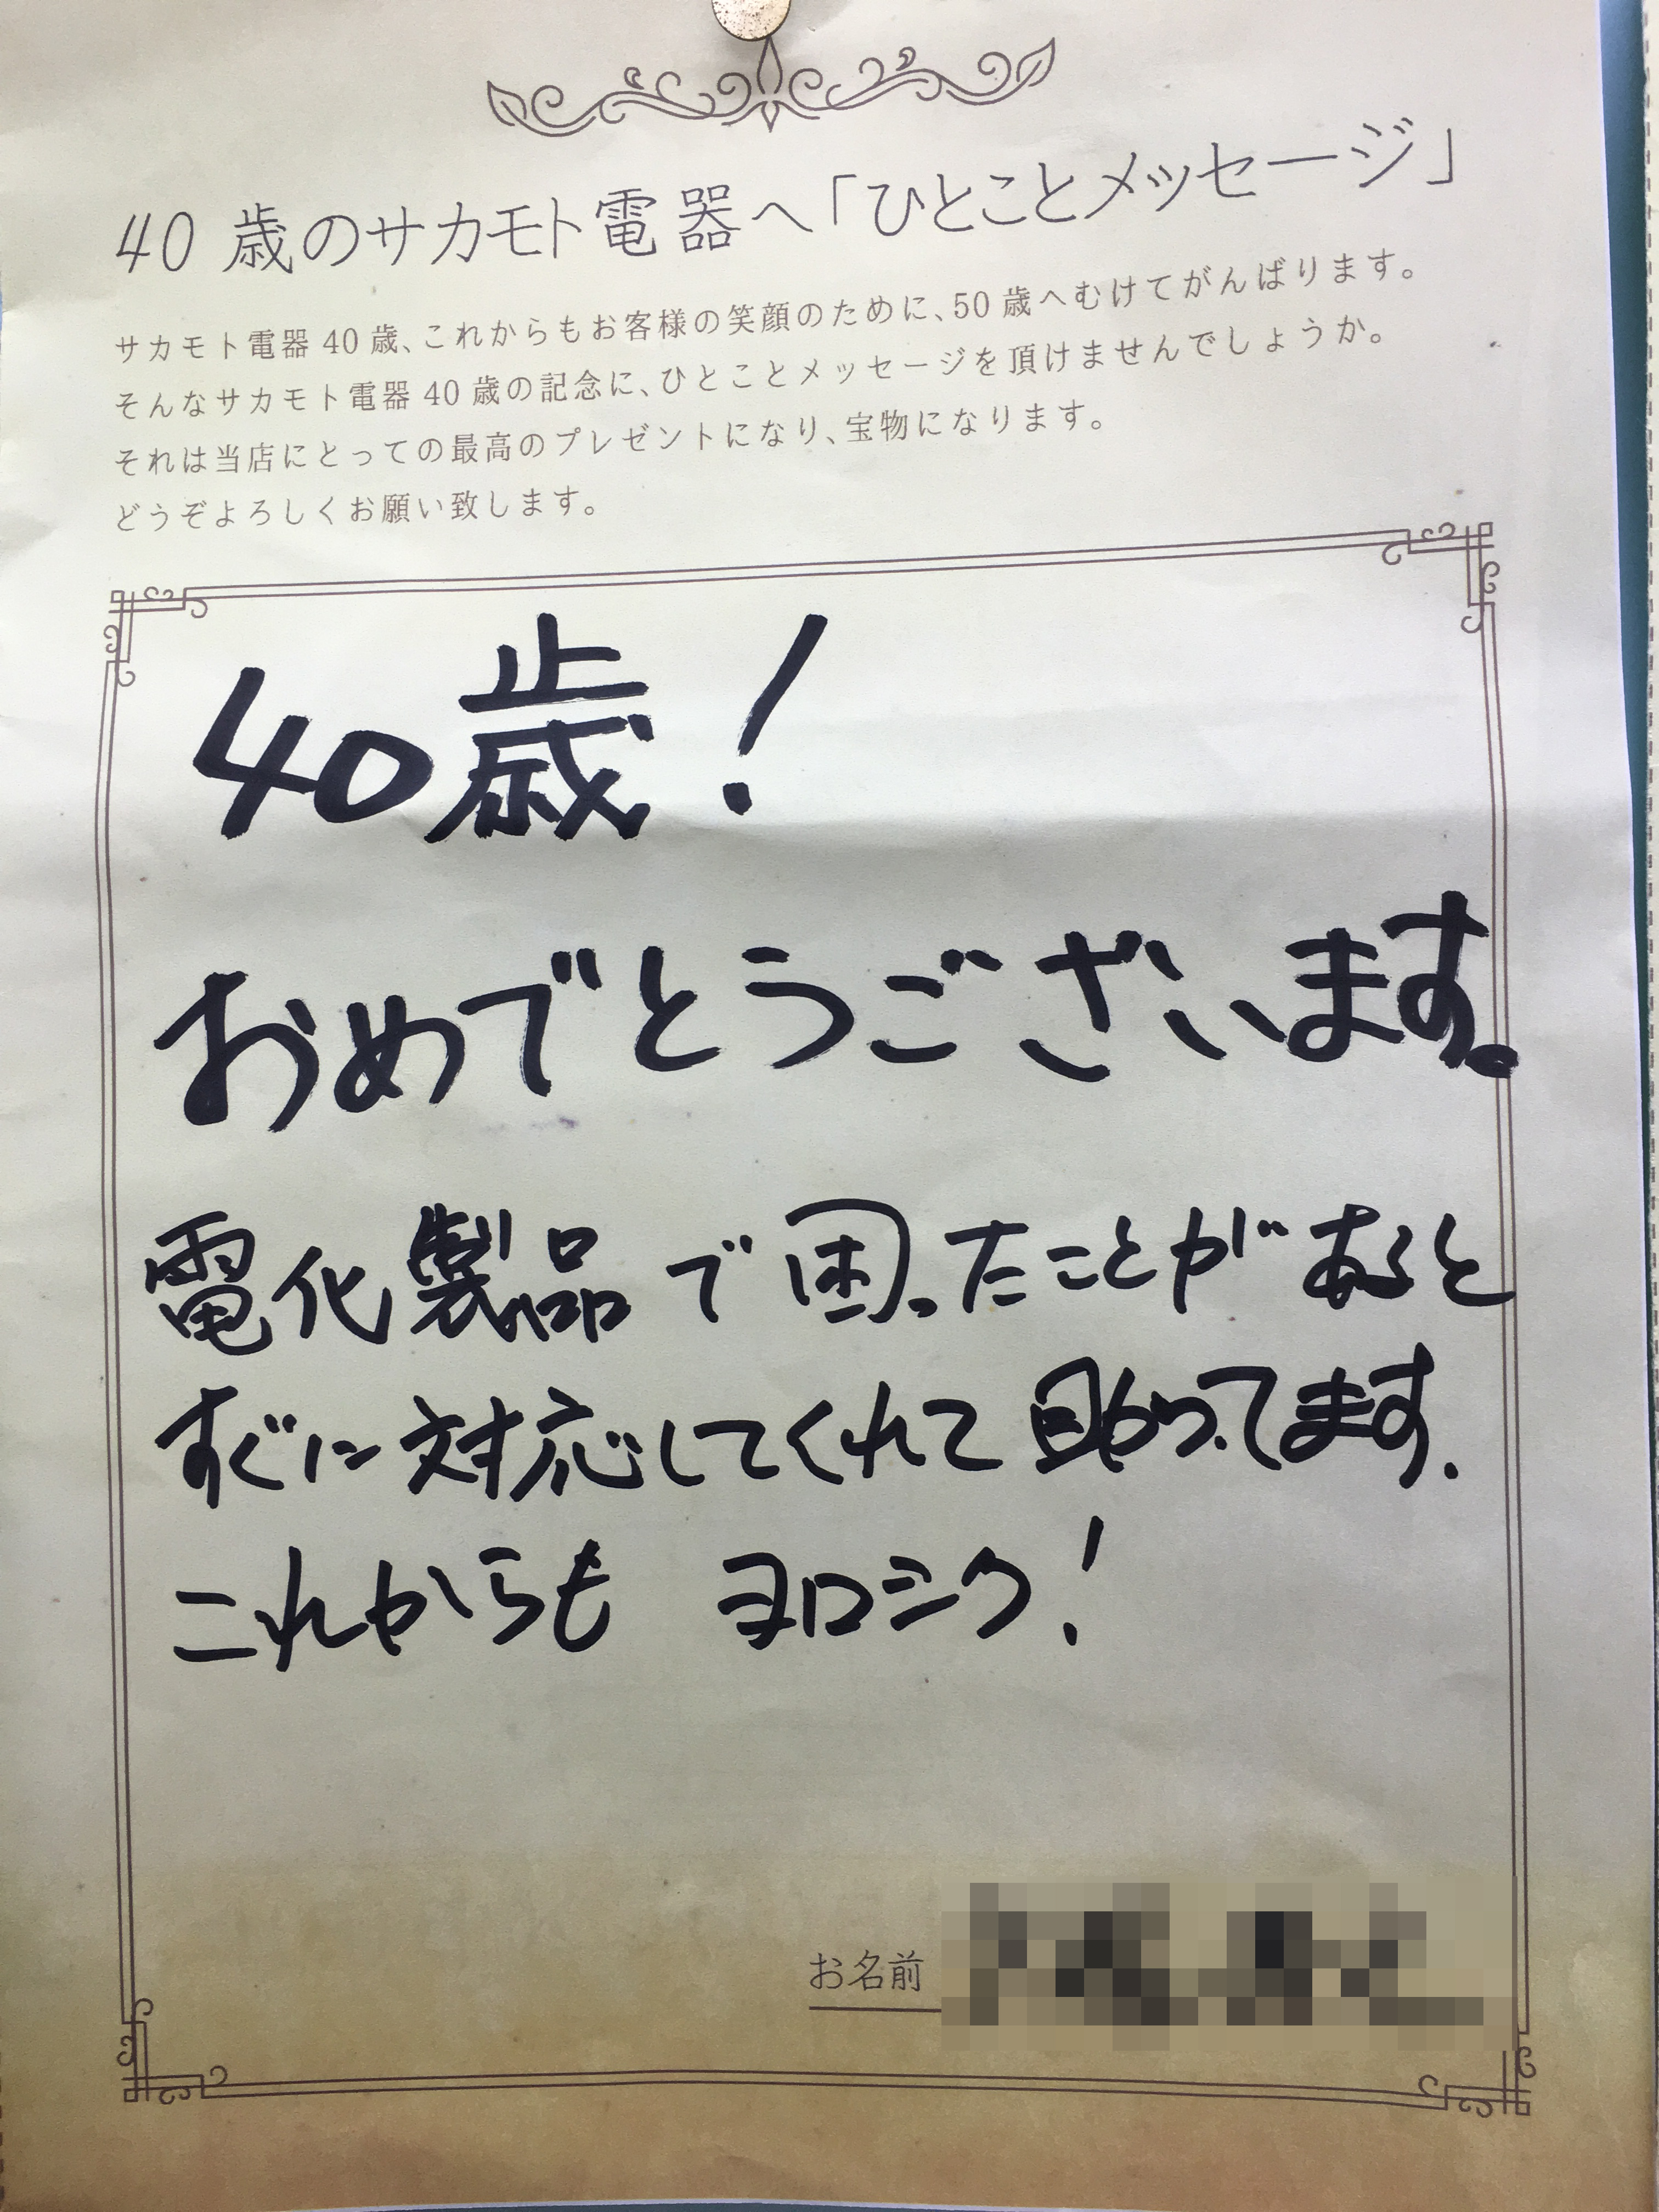 40 歳のサカモト電器へ「ひとことメッセージ」
サカモト電器 40 歳、これからもお客様の笑顔のために、50 歳へむけてがんばります。
そんなサカモト電器 40 歳の記念に、ひとことメッセージを頂けませんでしょうか。
それは当店にとっての最高のプレゼントになり、宝物になります。
どうぞよろしくお願い致します。
40歳！
おめでとうございます。
電化製品で困ったことがあると
すぐに対応してくれて助かってます.
これからも ヨロシク！
お名前